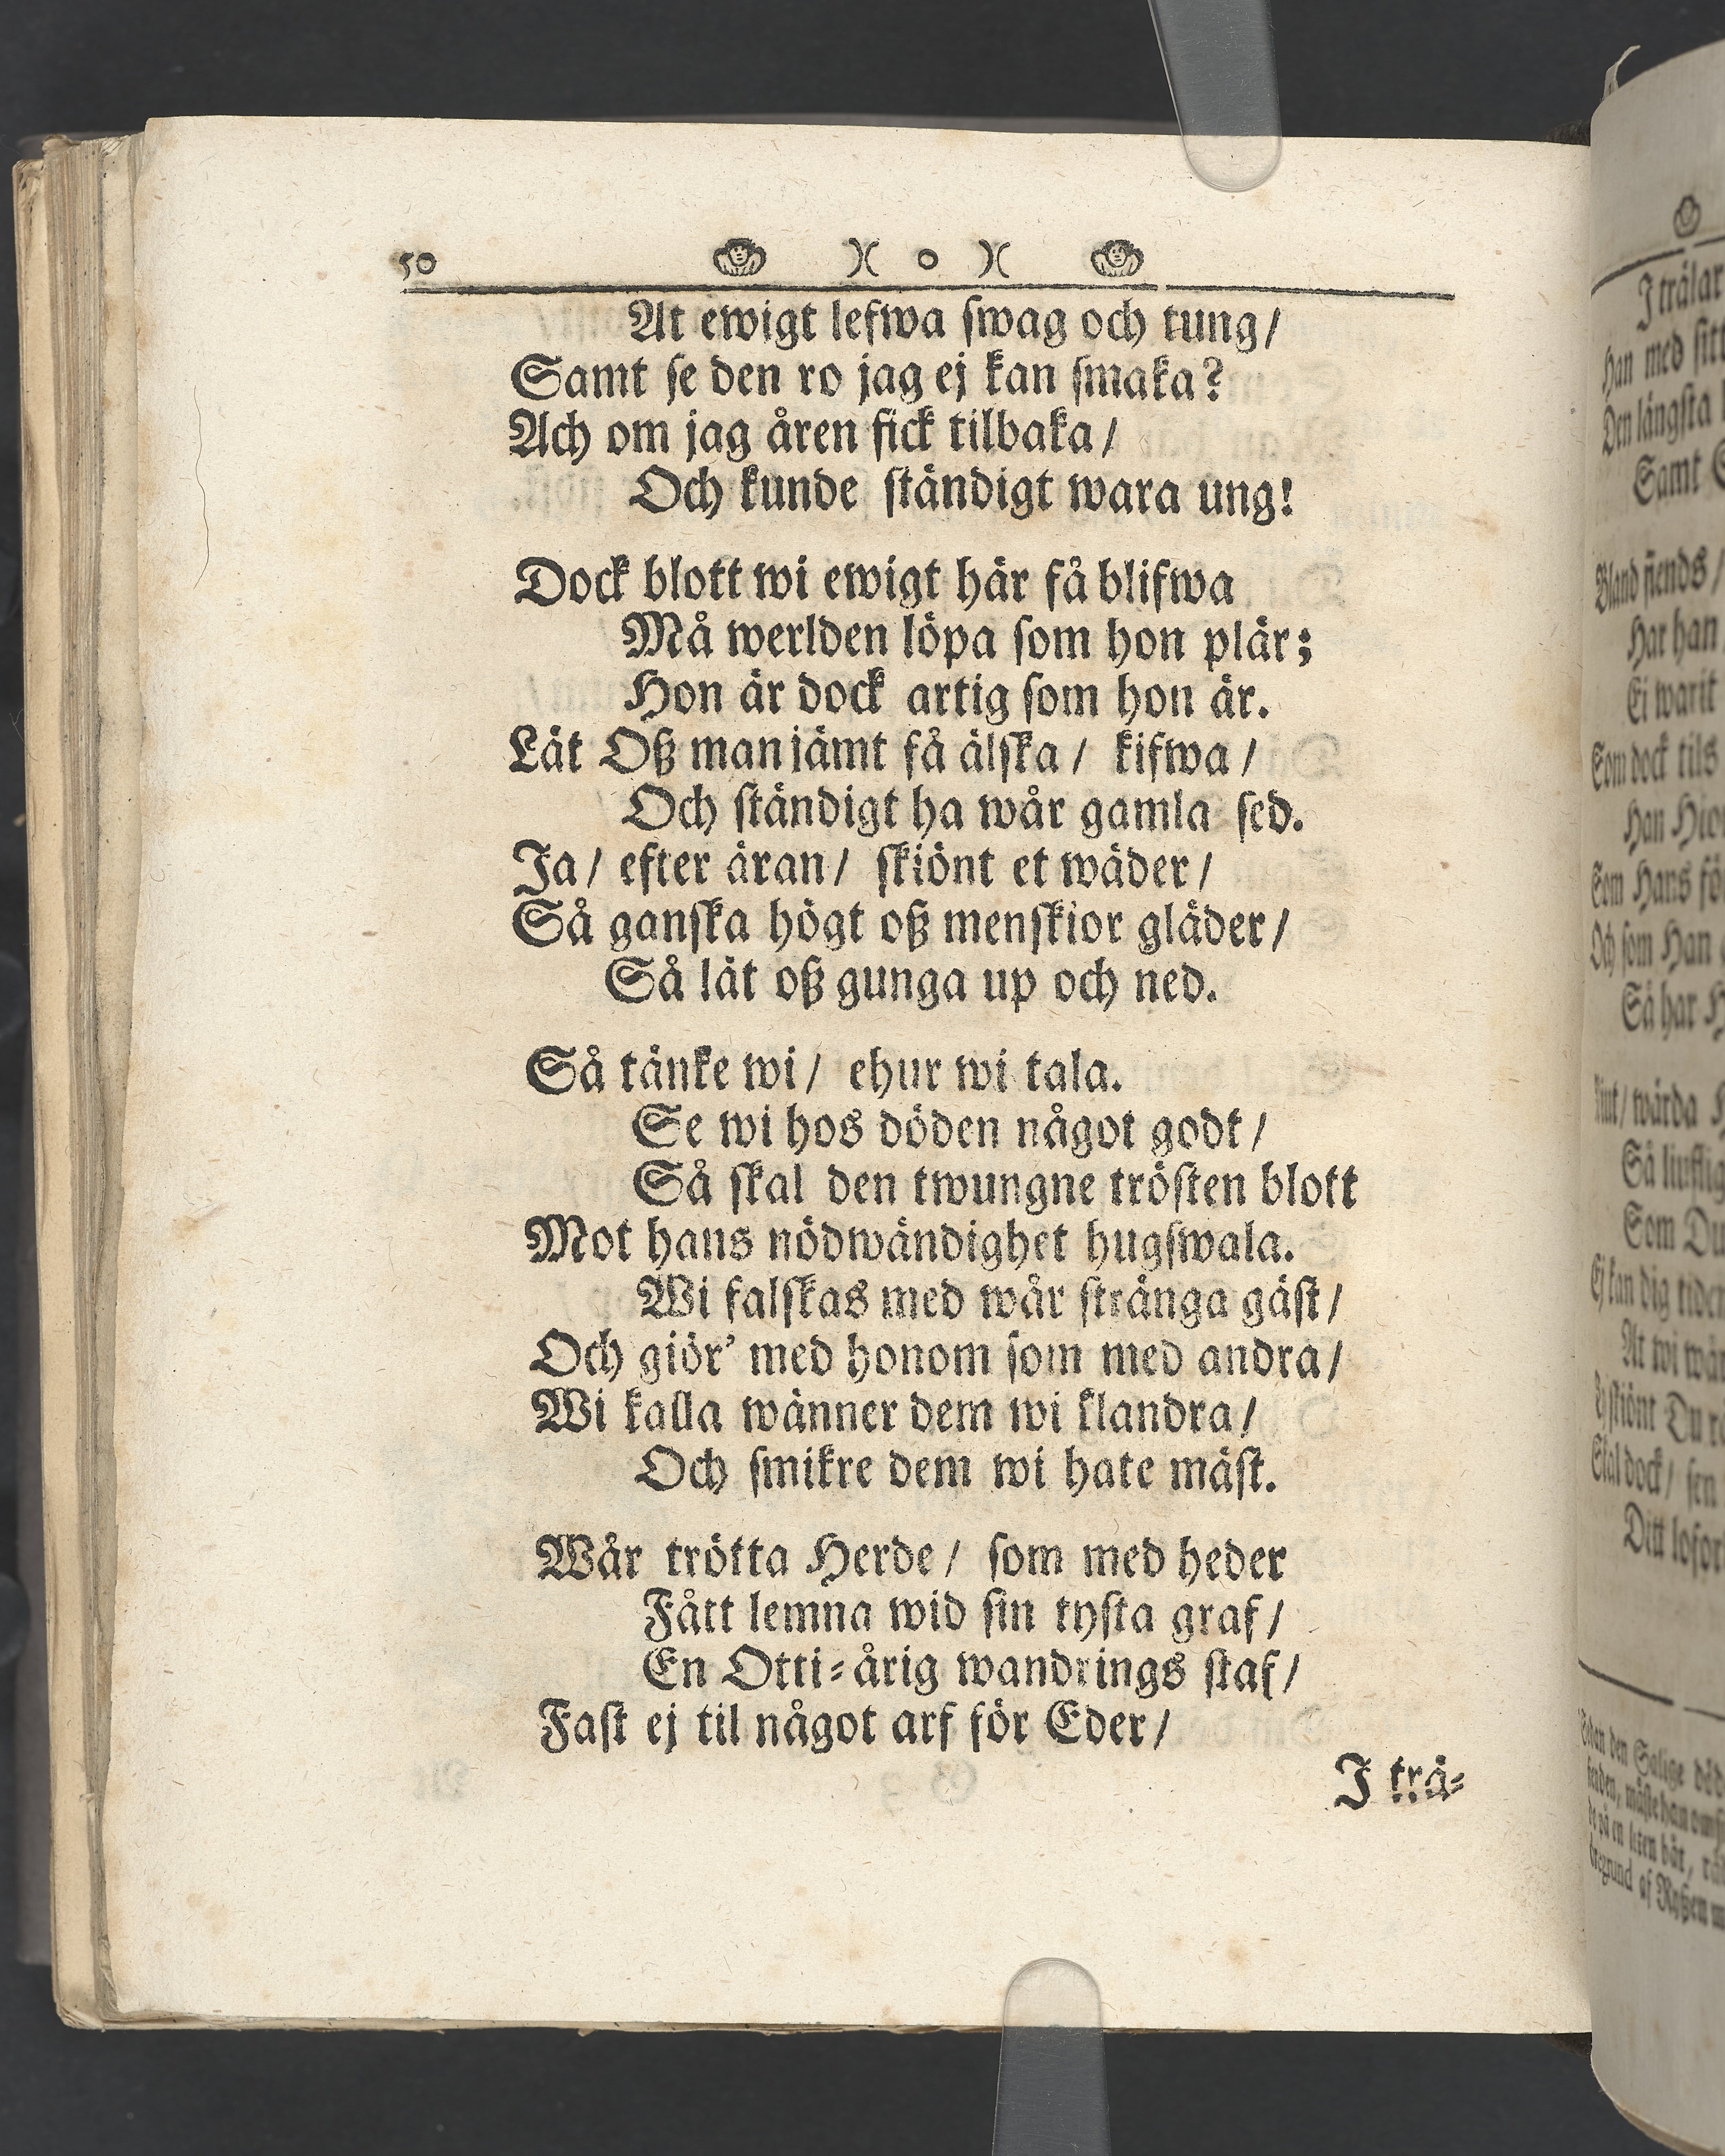 50 )( o )(
At ewigt lefwa ſwag och tung/
Samt ſe den ro jag ej kan ſmaka?
Ach om jag åren fick tilbaka/
Och kunde ſtändigt wara ung!
Dock blott wi ewigt här få blifwa
Må werlden löpa ſom hon plär;
Hon är dock artig ſom hon är.
Lät Oß man jämt få älſka/ kifwa/
Och ſtändigt ha wår gamla ſed.
Ja/ efter äran/ ſkiönt et wäder/
Så ganſka högt oß menſkior gläder/
Så lät oß gunga up och ned.
Så tänke wi/ ehur wi tala.
Se wi hos döden något godt/
Så ſkal den twungne tröſten blott
Mot hans nödwändighet hugſwala.
Wi falſkas med wår ſtränga gäſt/
Och giör' med honom ſom med andra/
Wi kalla wänner dem wi klandra/
Och ſmikre dem wi hate mäſt.
Wår trötta Herde/ ſom med heder
Fått lemna wid ſin tyſta graf/
En Otti-årig wandrings ſtaf/
Faſt ej til något arf för Eder/
I trä-
I trälar
Han med ſitt
Den längſta
Samt
Bland fiends/
Har han
Ei warit
Som dock tils
Han
Som Hans
Och ſom Han
Så har
wärda
Så
Som Du
Ej kan dig
At wi
Du
Skal dock/ ſen
Ditt
den Salige